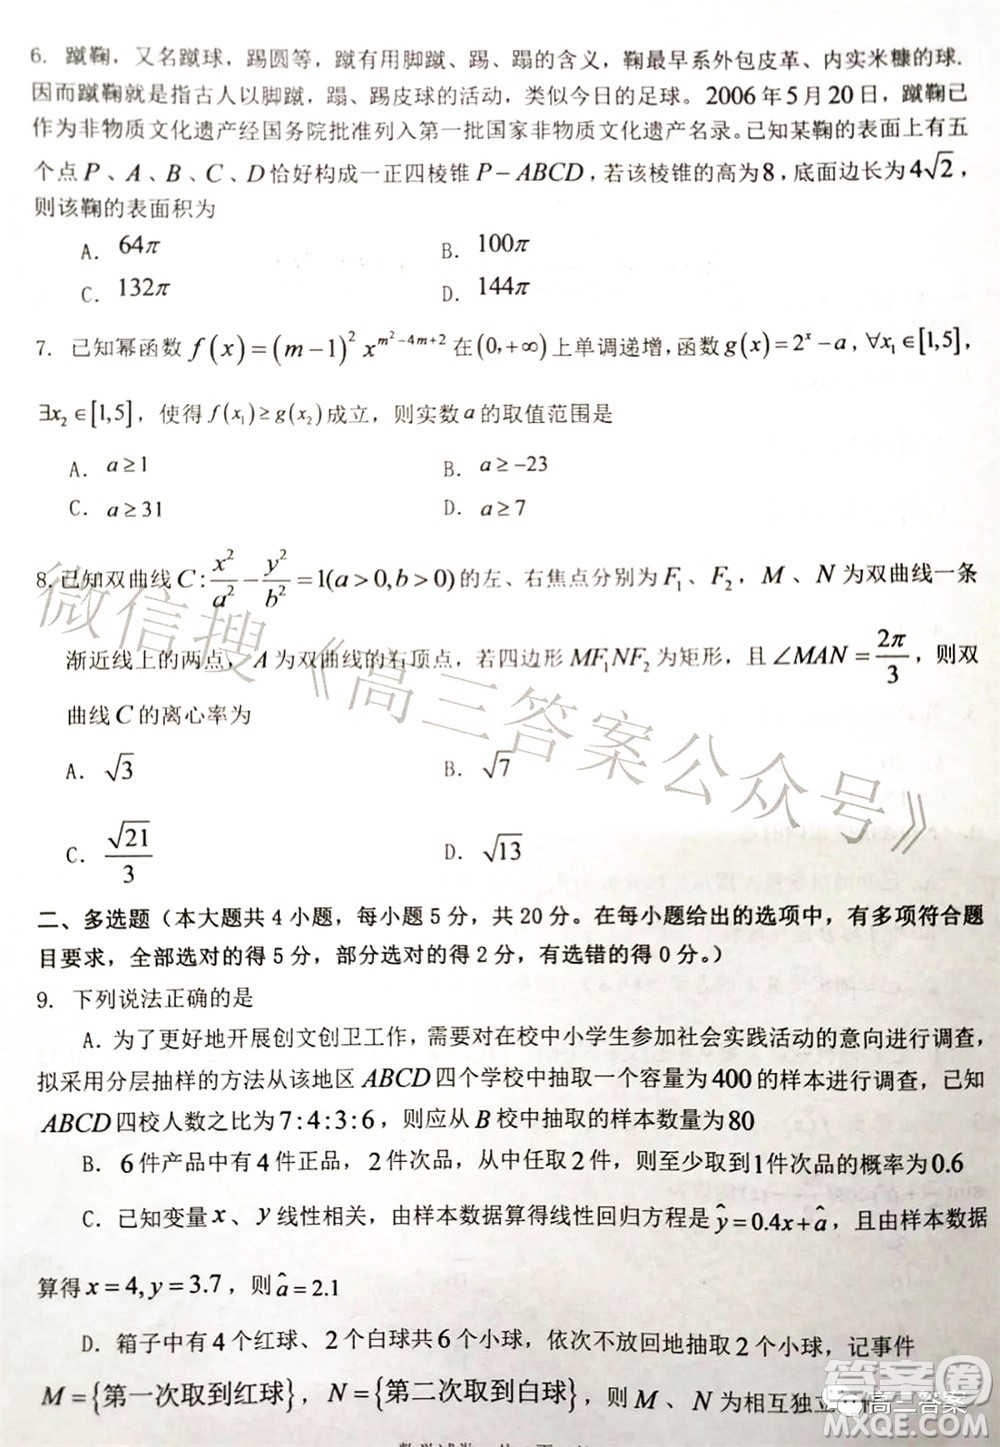 6. 蹴鞠，又名蹴球，踢圆等，蹴有用脚蹴、踢、蹋的含义，鞠最早系外包皮革、内实米糠的球.
因而蹴鞠就是指古人以脚蹴，蹋、踢皮球的活动，类似今日的足球。2006年5月20日，蹴鞠已
作为非物质文化遗产经国务院批准列入第一批国家非物质文化遗产名录。已知某鞠的表面上有五
个点 P、A、B、C、D 恰好构成一正四棱锥 P－ABCD，若该棱锥的高为8，底面边长为 4√2，
则该鞠的表面积为
A. 64π B. 100π
C. 132π D. 144π
7. 已知幂函数 f(x)=(m−1)² x^(m²−4m+2) 在(0,+∞)上单调递增，函数 g(x)=2^x−a，∀x₁∈[1,5]，
∃x₂∈[1,5]，使得 f(x₁)≥g(x₂)成立，则实数 a 的取值范围是
A. a≥1 B. a≥−23
C. a≥31 D. a≥7
8. 已知双曲线 C: x²/a² − y²/b² =1(a>0,b>0)的左、右焦点分别为 F₁、F₂，M、N 为双曲线一条
渐近线上的两点，A 为双曲线的右顶点，若四边形 MF₁NF₂ 为矩形，且 ∠MAN=2π/3，则双
曲线 C 的离心率为
A. √3 B. √7
C. √21/3 D. √13
二、多选题（本大题共4小题，每小题5分，共20分。在每小题给出的选项中，有多项符合题
目要求，全部选对的得5分，部分选对的得2分，有选错的得0分。）
9. 下列说法正确的是
A. 为了更好地开展创文创卫工作，需要对在校中小学生参加社会实践活动的意向进行调查，
拟采用分层抽样的方法从该地区 ABCD 四个学校中抽取一个容量为400的样本进行调查，已知
ABCD 四校人数之比为7:4:3:6，则应从 B 校中抽取的样本数量为80
B. 6件产品中有4件正品，2件次品，从中任取2件，则至少取到1件次品的概率为0.6
C. 已知变量 x、y 线性相关，由样本数据算得线性回归方程是 ŷ=0.4x+â，且由样本数据
算得 x=4,y=3.7，则 â=2.1
D. 箱子中有4个红球、2个白球共6个小球，依次不放回地抽取2个小球，记事件
M={第一次取到红球}，N={第二次取到白球}，则 M、N 为相互独立事件
微信搜《高三答案公众号》
答案圈
高三答案
MXQE.COM